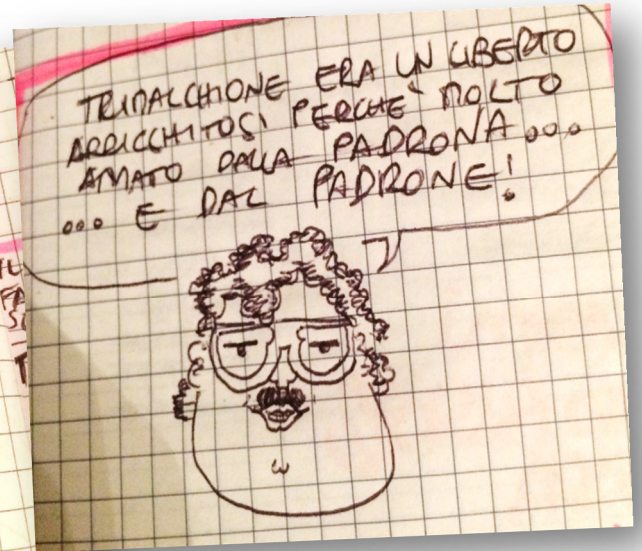 TRIMALCHIONE ERA UN LIBERTO
ARRICCHITOSI PERCHÈ MOLTO
AMATO DALLA PADRONA...
... E DAL PADRONE!